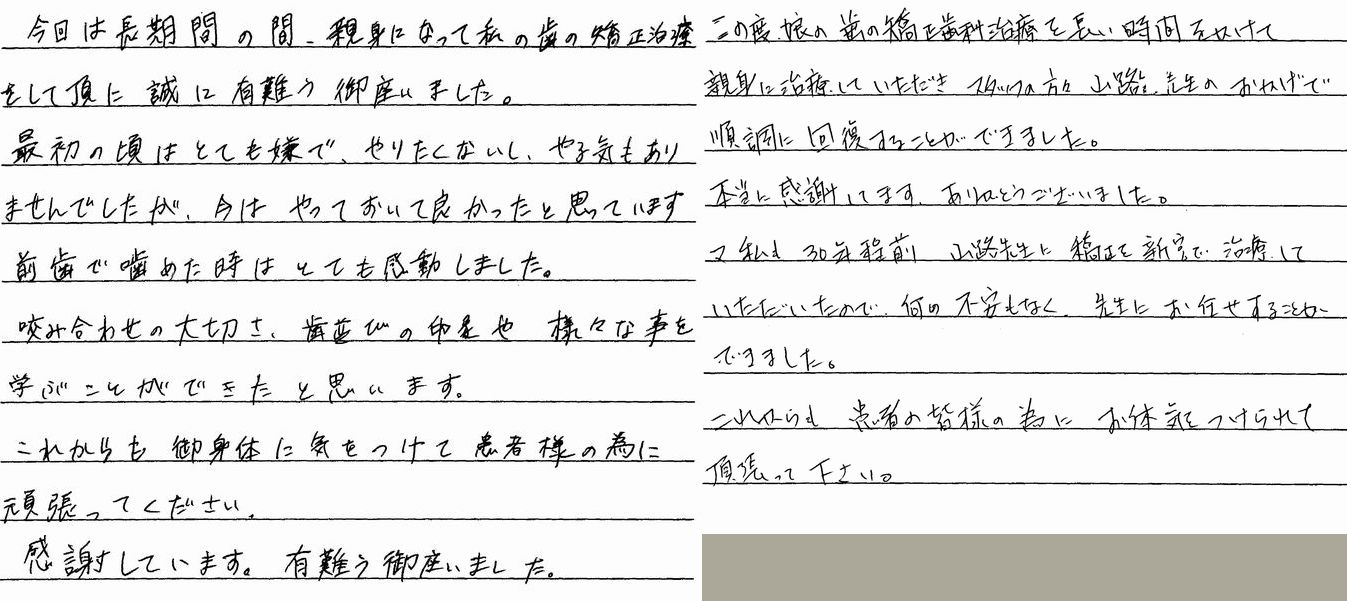 今回は長期間の間、親身になって私の歯の矯正治療
をして頂に誠に有難う御座いました。
最初の頃はとても嫌で、やりたくないし、やる気もあり
ませんでしたが、今はやっておいて良かったと思っています
前歯で噛めた時はとても感動しました。
咬み合わせの大切さ、歯並びの印象や様々な事を
学ぶことができたと思います。
これからも御身体に気をつけて患者様の為に
頑張ってください。
感謝しています。有難う御座いました。
この度、娘の歯の矯正歯科治療を長い時間をかけて
親身に治療していただき スタッフの方々 山路先生のおかげで
順調に回復することができました。
本当に感謝してます。ありがとうございました。
又私も30年程前 山路先生に矯正を新宮で治療して
いただいたので、何の不安もなく、先生にお任せすることが
できました。
これからも 患者の皆様の為に お体気をつけられて
頂張って下さい。